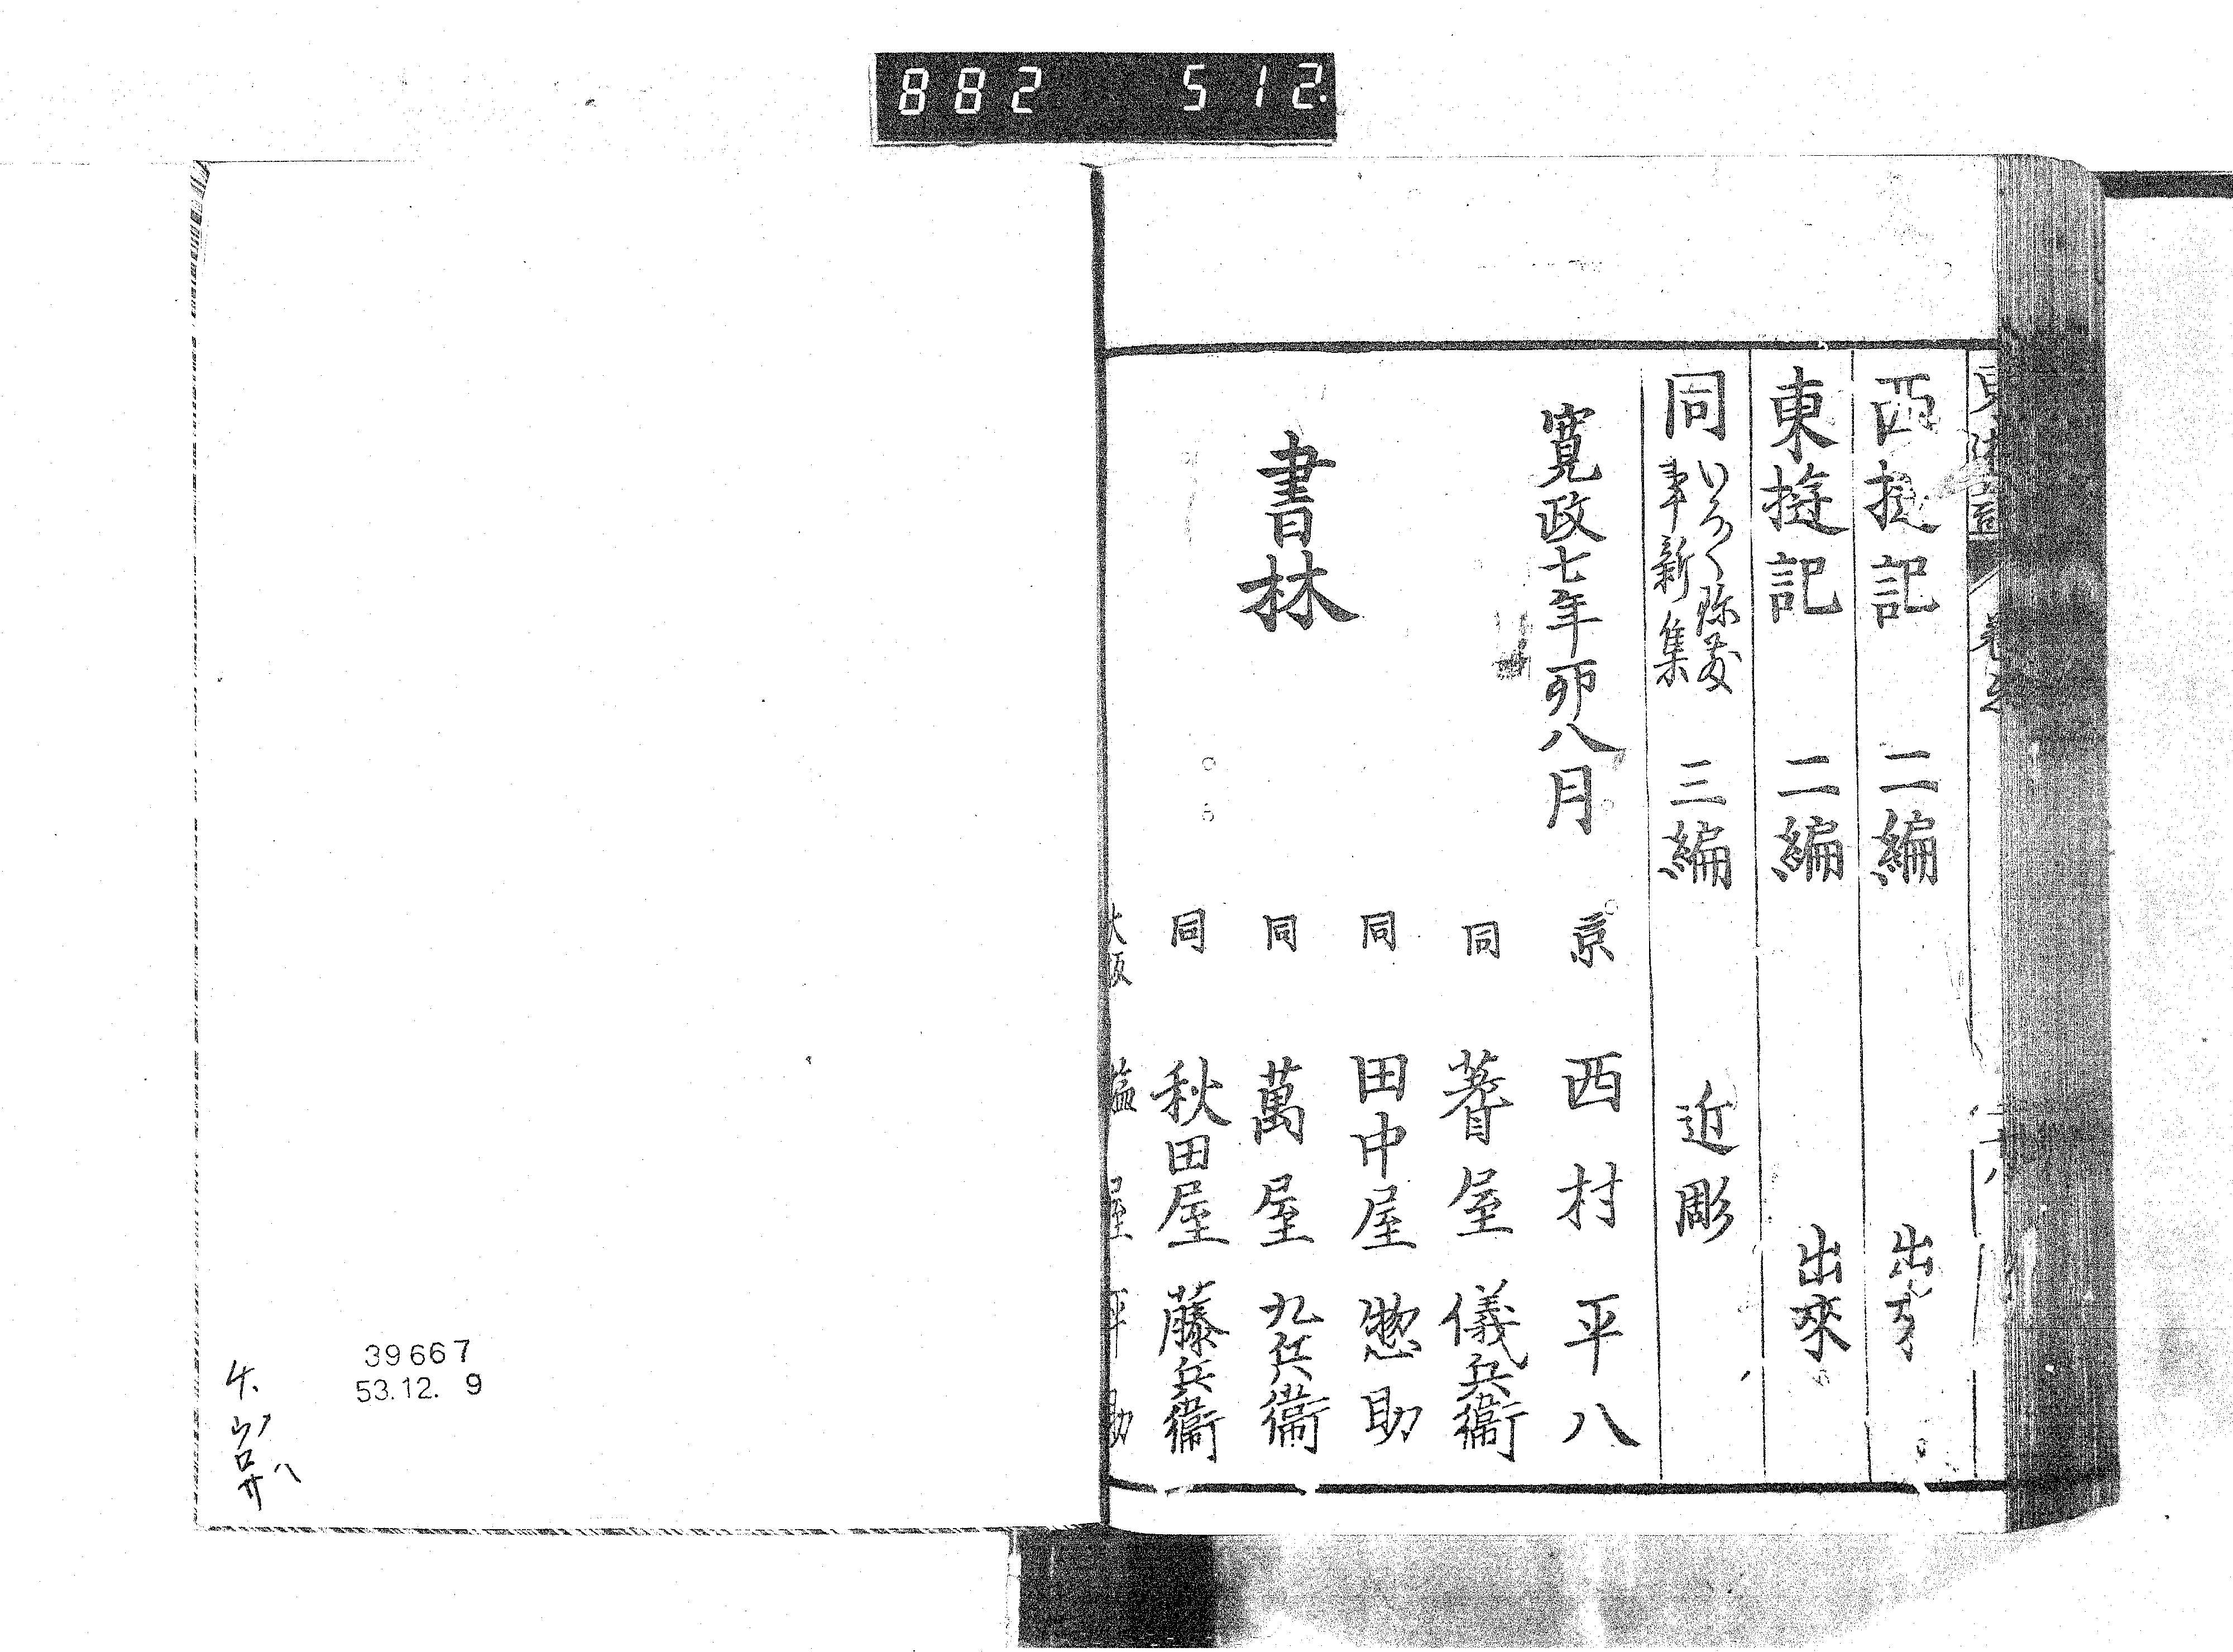 882 512.
西遊記 二編 出来
東遊記 二編 出來
同 いろ〱珍敷事新集 三編 近彫
寛政七年卯八月
書林
京 西村平八
同 蓍屋儀兵衞
同 田中屋惣助
同 萬屋九兵衞
同 秋田屋藤兵衞
大坂 塩屋平助
39667
53.12. 9